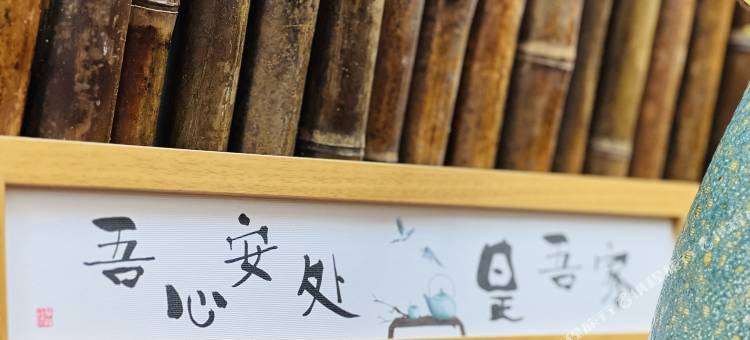 吾心安处 是吾家